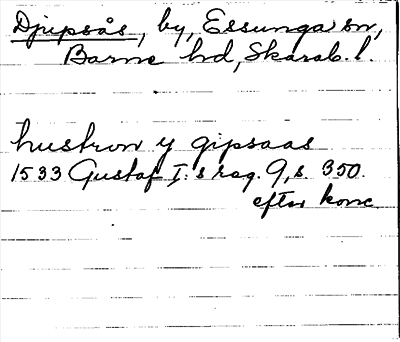 Djupsås, by, Essunga sn,
Barne hd, Skarab. l.
hustron y gipsaas
1533 Gustaf I:s reg. 9, s. 350.
efter konc